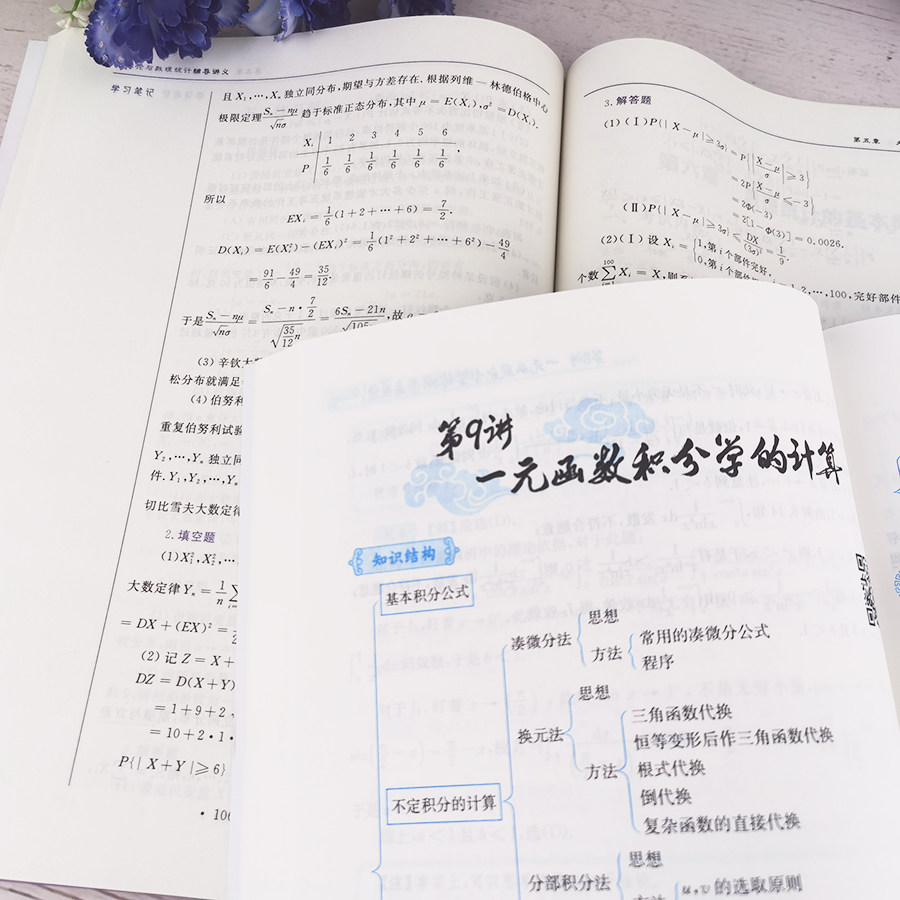 与数理统计辅导讲义
学习笔记
且 X₁,…,Xₙ 独立同分布,期望与方差存在.根据列维—林德伯格中心
极限定理 (Sₙ−nμ)/(√nσ) 趋于标准正态分布,其中 μ = E(Xᵢ),σ² = D(Xᵢ).
Xᵢ 1 2 3 4 5 6
P 1/6 1/6 1/6 1/6 1/6 1/6 .
所以
EXᵢ = 1/6(1+2+…+6) = 7/2.
D(Xᵢ) = E(Xᵢ²)−(EXᵢ)² = 1/6(1²+2²+…+6²)−49/4
= 91/6 − 49/4 = 35/12.
于是 (Sₙ−nμ)/(√nσ) = (Sₙ−n·7/2)/√(35/12 n) = (6Sₙ−21n)/√105 ,故
(3) 辛钦大
松分布就满足
(4) 伯努利
重复伯努利试验
Y₂,…,Yₙ 独立同
件.Y₁,Y₂,…,Yₙ
切比雪夫大数定律
2. 填空题
(1) X₁²,X₂²,…
大数定律 Yₙ = 1/n ∑
= DX+(EX)² =
(2) 记 Z = X+
DZ = D(X+Y)
= 1+9+2
= 10+2·1·
P{|X+Y|≥6}
· 106
第五章
3. 解答题
(1) (Ⅰ) P{|X−μ|≥3σ} = P{|(X−μ)/σ|≥3}
= 2P{(X−μ)/σ≤−3}
= 2Φ(−3)
= 2[1−Φ(3)] = 0.0026.
(Ⅱ) P{|X−μ|≥3σ} ≤ DX/(3σ)² = 1/9.
(2) (Ⅰ) 设 Xᵢ = {1,第 i 个部件完好,
0,第 i 个部件
1,2,…,100,完好部件
个数 ∑ Xᵢ = X,则
第9讲
一元函数积分学的计算
知识结构
基本积分公式
思想
凑微分法
方法
常用的凑微分公式
程序
思想
换元法
三角函数代换
恒等变形后作三角函数代换
方法
根式代换
倒代换
复杂函数的直接代换
不定积分的计算
思想
分部积分法
u,v 的选取原则